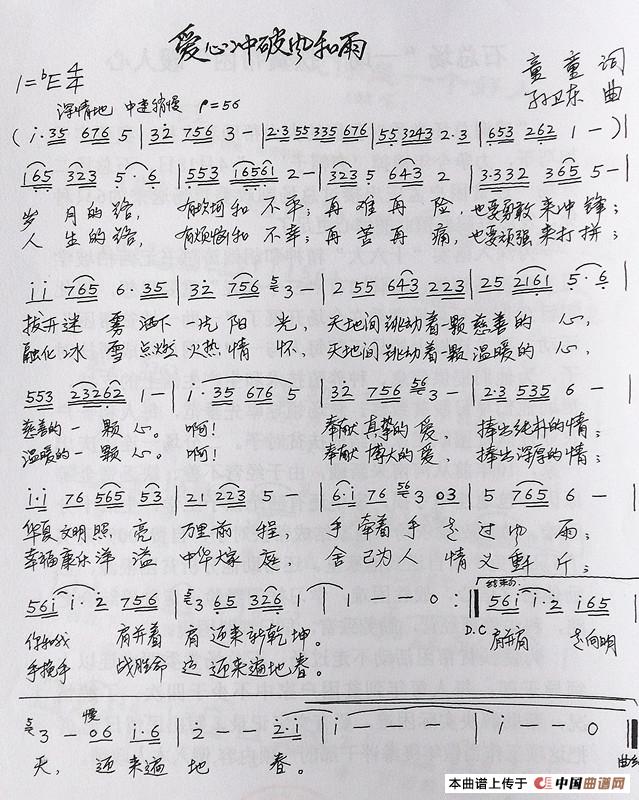 爱心冲破风和雨
1=bE 4/4
童童 词
孙卫东 曲
深情地 中速稍慢 =56
(i·35 676 5 | 32 756 3 - | 2·3 55335 676 | 55 3243 2·3 | 653 262 1 - )
165 323 5·6 | 553 16561 2 - | 323 5 643 2 | 3·332 365 5 -
岁月的路， 有坎坷和不平；再难再险，也要勇敢来冲锋；
人生的路， 有烦恼和不幸；再苦再痛，也要顽强来打拼；
ii 765 6·35 | 32 756 3 - | 2 55 643 223 | 25 2161 5·6
拨开迷雾洒下一片阳光，天地间跳动着一颗慈善的心，
融化冰雪点燃火热情怀，天地间跳动着一颗温暖的心，
553 23262 1 - | i·35 676 5 | 32 756 56 3 - | 2·3 535 6 -
慈善的一颗心。啊！ 奉献真挚的爱，捧出纯朴的情；
温暖的一颗心。啊！ 奉献博大的爱，捧出深厚的情；
i·i 76 565 53 | 21 223 5 - | 6·i 76 56 3 03 | 5 765 6 -
华夏文明照亮 万里前程，手牵着手走过 雨；
幸福康乐洋溢 中华大家庭，舍己为人情义重千斤；
56i i·2 756 | 3 65 326 1 | 1 - - 0 :| 结束句 56i i·2 i65
你和我 肩并着肩迎来新乾坤。 D.C 肩并肩 走向明
手挽手 战胜命 迎来遍地春。
3 - 慢 06 i·6 | 2 - - 2·1 | i - - - | i - - 0
天，迎来遍地春。
本曲谱上传于 中国曲谱网